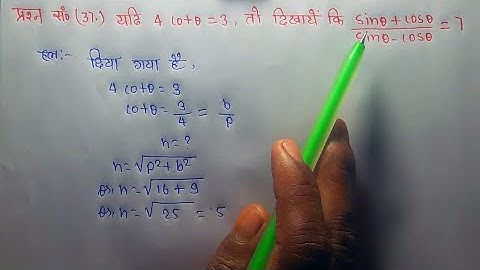 प्रश्न सं० (37.) यदि 4 cotθ = 3, तो दिखायें कि (sinθ + cosθ)/(sinθ - cosθ) = 7
हल:- दिया गया है,
4 cotθ = 3
cotθ = 3/4 = b/p
h = ?
h = √(p²+b²)
or, h = √(16 + 9)
or, h = √25 = 5